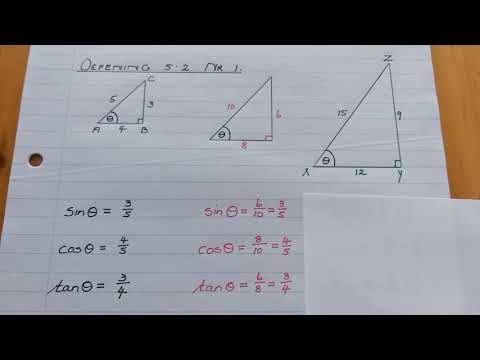 OEFENING 5.2 NR 1.
C
5
3
θ
A
4
B
10
6
θ
8
Z
15
9
θ
X
12
Y
sinθ = 3/5
sinθ = 6/10 = 3/5
cosθ = 4/5
cosθ = 8/10 = 4/5
tanθ = 3/4
tanθ = 6/8 = 3/4